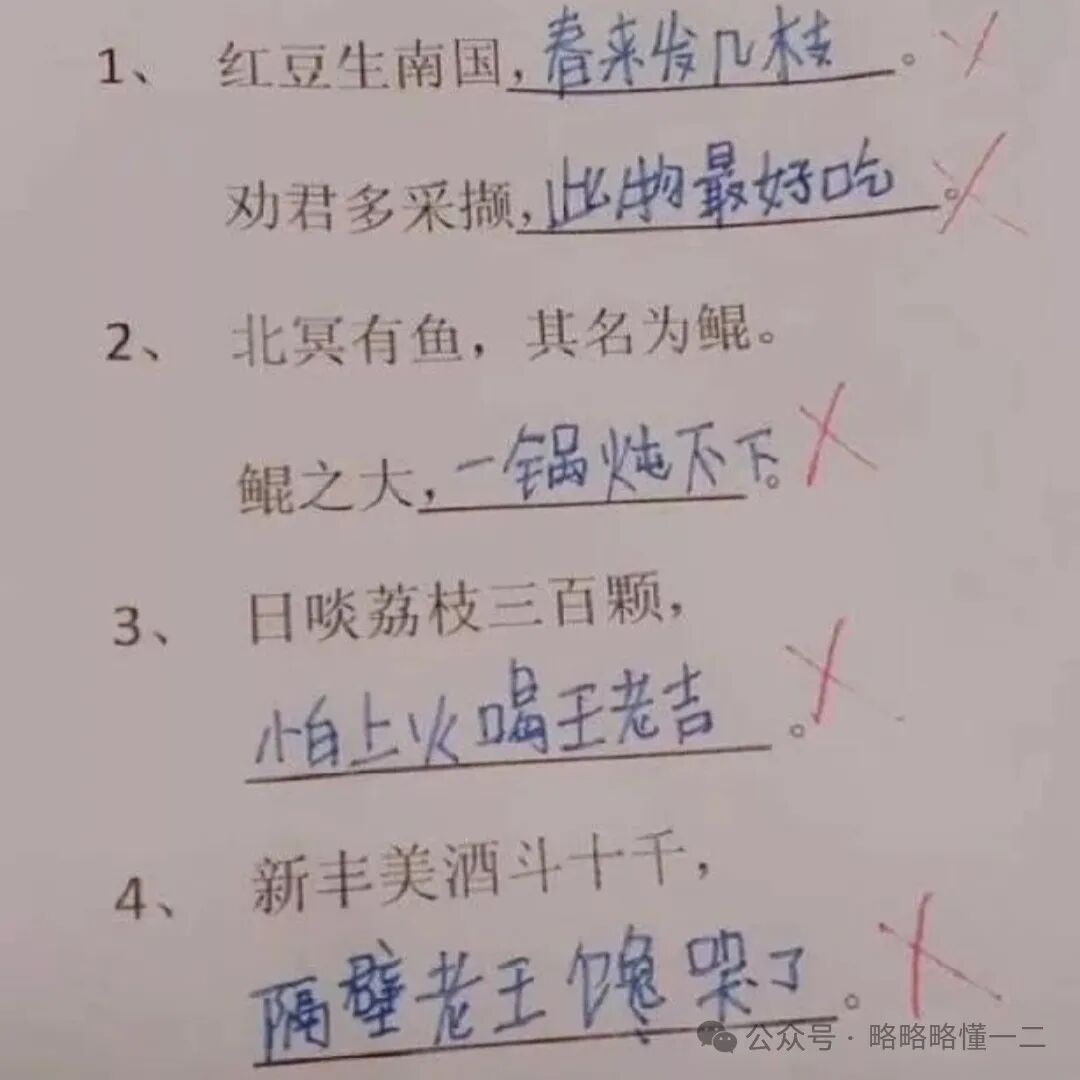 1、 红豆生南国,春来发几枝。
劝君多采撷,此物最好吃。
2、 北冥有鱼，其名为鲲。
鲲之大,一锅炖不下。
3、 日啖荔枝三百颗,
怕上火喝王老吉。
4、 新丰美酒斗十千,
隔壁老王馋哭了。
公众号 · 略略略懂一二